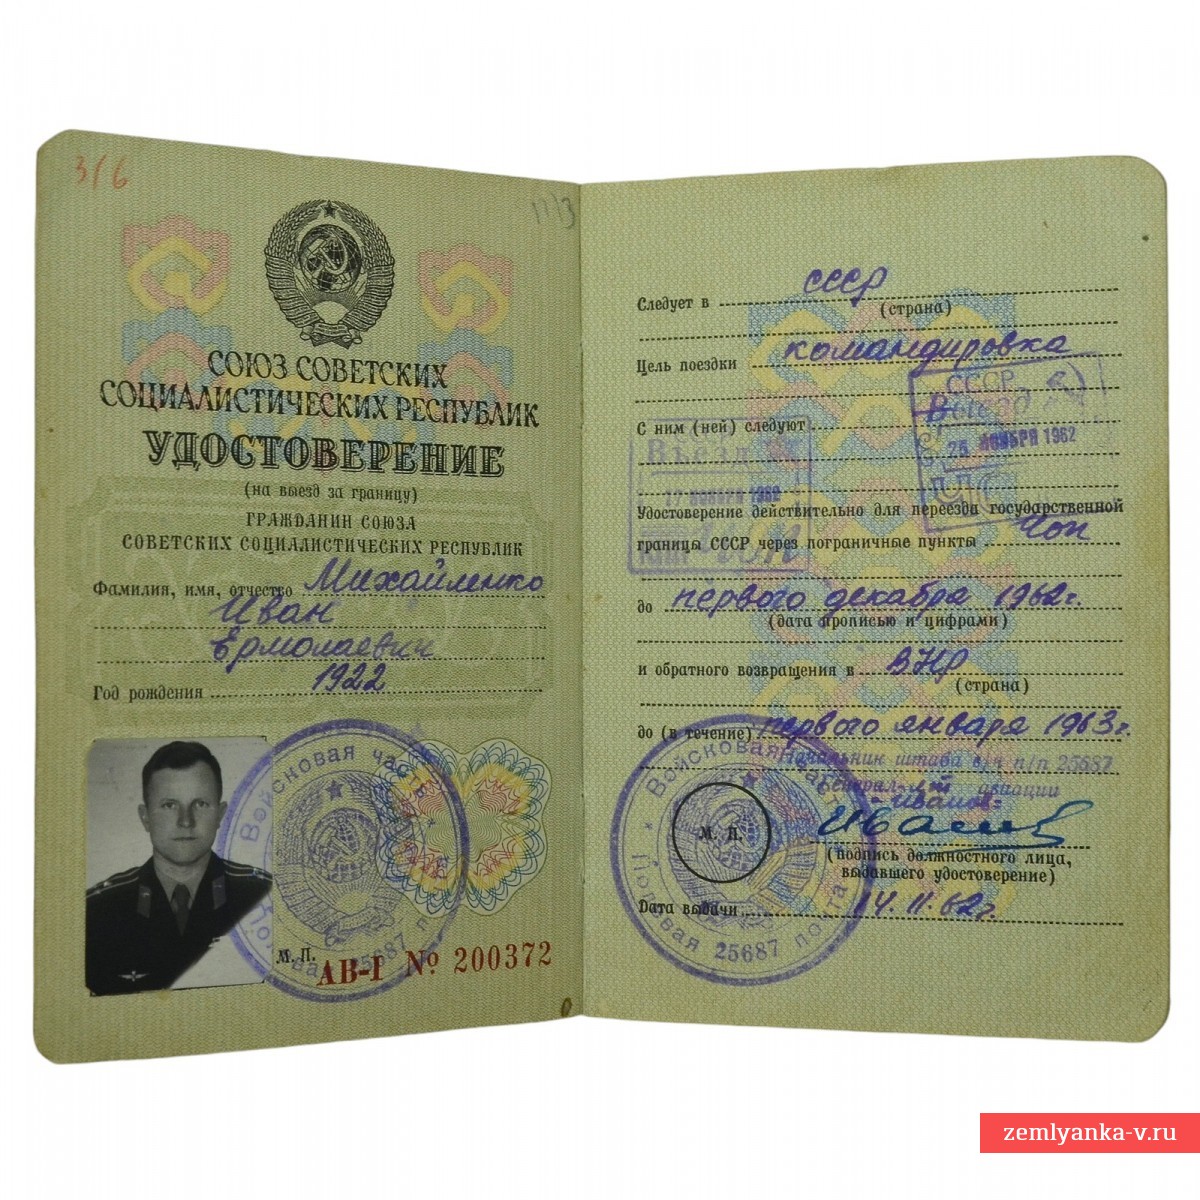 316
1113
СОЮЗ СОВЕТСКИХ
СОЦИАЛИСТИЧЕСКИХ РЕСПУБЛИК
УДОСТОВЕРЕНИЕ
(на выезд за границу)
ГРАЖДАНИН СОЮЗА
СОВЕТСКИХ СОЦИАЛИСТИЧЕСКИХ РЕСПУБЛИК
Фамилия, имя, отчество Михайленко
Иван
Ермолаевич
Год рождения 1922
Войсковая часть
Полевая почта 25687
М. П.
АВ-I № 200372
Следует в СССР
(страна)
Цель поездки командировка
СССР
Выезд
25 НОЯБРЯ 1962
С ним (ней) следуют
Въезд
НОЯБРЯ 1962
Чоп
Удостоверение действительно для переезда государственной
границы СССР через пограничные пункты Чоп
до первого декабря 1962г.
(дата прописью и цифрами)
и обратного возвращения в ВНР
(страна)
до (в течение) первого января 1963г.
Начальник штаба в/ч п/п 25687
Генерал-л-т авиации
-Иванов-
М. П.
Войсковая часть
Полевая почта
25687
(подпись должностного лица,
выдавшего удостоверение)
Дата выдачи 14.11.62г.
zemlyanka-v.ru